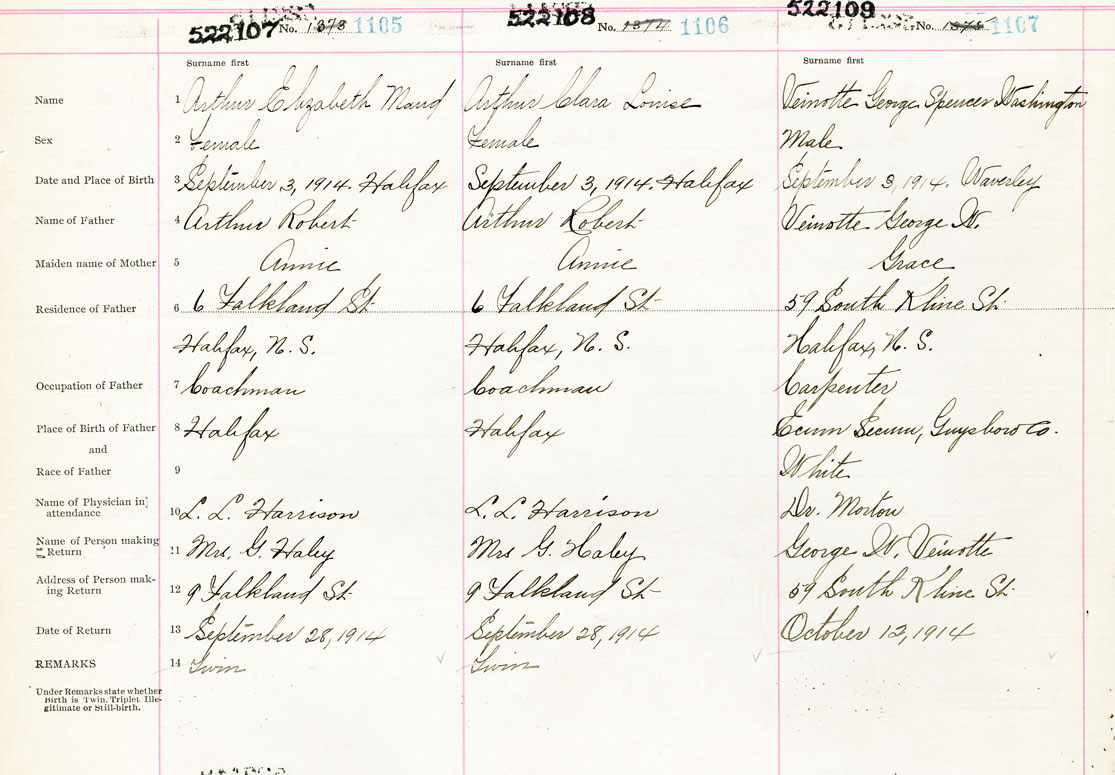 522107 No. 1873 1105
522108 No. 1874 1106
522109 No. 1875 1107
Surname first Surname first Surname first
Name 1 Arthur Elizabeth Maud Arthur Clara Louise Veinotte George Spencer Washington
Sex 2 Female Female Male
Date and Place of Birth 3 September 3, 1914. Halifax September 3, 1914. Halifax September 3, 1914. Waverley
Name of Father 4 Arthur Robert Arthur Robert Veinotte George W.
Maiden name of Mother 5 Annie Annie Grace
Residence of Father 6 6 Falkland St 6 Falkland St 59 South Kline St.
Halifax, N. S. Halifax, N. S. Halifax, N. S.
Occupation of Father 7 Coachman Coachman Carpenter
Place of Birth of Father 8 Halifax Halifax Ecum Secum, Guysboro Co.
and
Race of Father 9 White
Name of Physician in} attendance 10 L. L. Harrison L. L. Harrison Dr. Morton
Name of Person making Return 11 Mrs. G. Haley Mrs G. Haley George W. Veinotte
Address of Person mak-
ing Return 12 9 Falkland St 9 Falkland St 59 South Kline St.
Date of Return 13 September 28, 1914 September 28, 1914 October 12, 1914
REMARKS 14 Twin Twin
Under Remarks state whether
Birth is Twin, Triplet Ille-
gitimate or Still-birth.